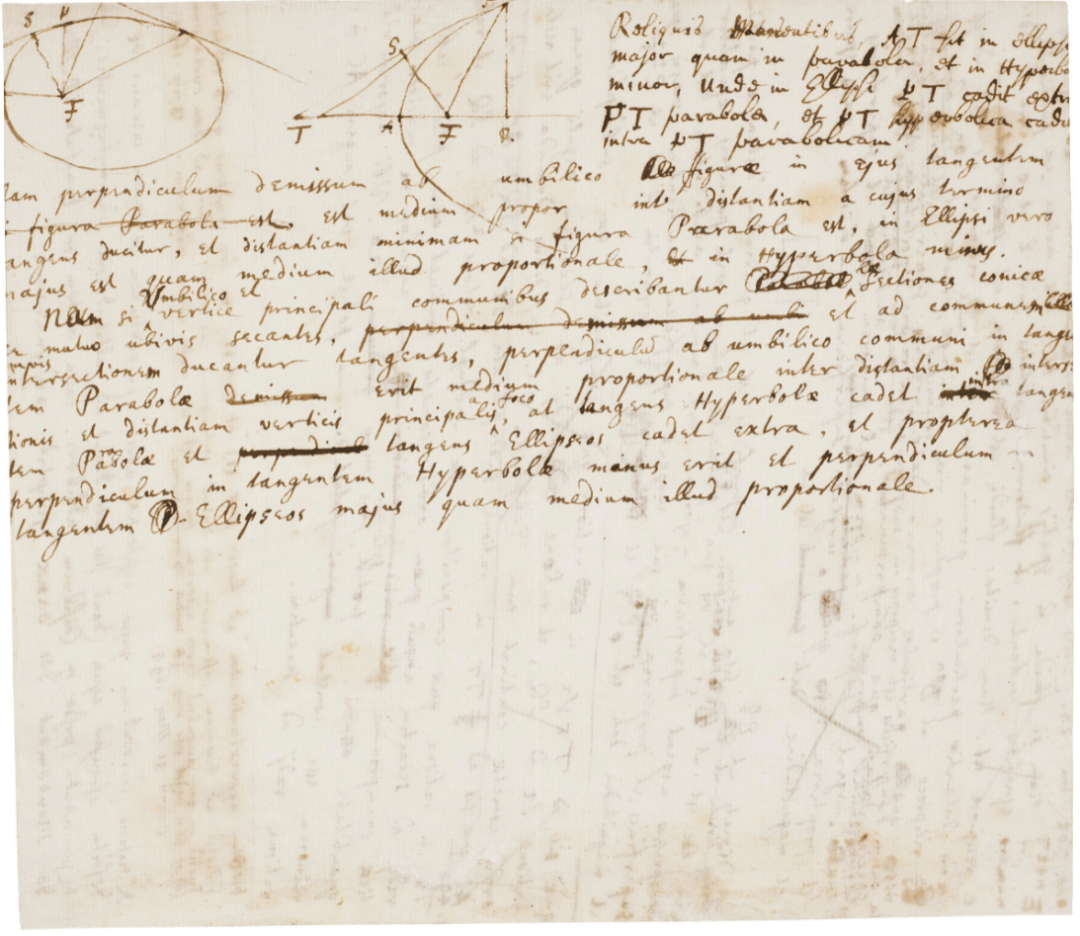 S P
F
S
T A F
Reliquis manentibus, AT fit in ellipsi
major quam in parabola, et in Hyperbo
minor, Unde in Ellipsi PT cadit extra
PT parabolæ, et PT hyperbolica cadit
intra PT parabolicam
perpendiculum demissum ab umbilico figuræ in ejus tangentem
figura Parabola est, est medium propor int distantiam a cujus termino
angens ducitur, et distantiam minimam si figura Parabola est, in Ellipsi vero
majus est quam medium illud proportionale, et in Hyperbola minus.
Nam si umbilico et vertice principali communibus describantur Sectiones conicæ
mutuo ubivis secantes, perpendiculum demissum ab umbi et ad communem
intersectionem ducantur tangentes, perpendiculū ab umbilico communi in tange
Parabolæ demissum erit medium proportionale inter distantiam inters
tionis et distantiam verticis principalis, a foco at tangens Hyperbolæ cadet intra tangen
tem Parabolæ et perpendicul tangens Ellipseos cadet extra, et propterea
perpendiculum in tangentem Hyperbolæ minus erit et perpendiculum
tangentem Ellipseos majus quam medium illud proportionale.